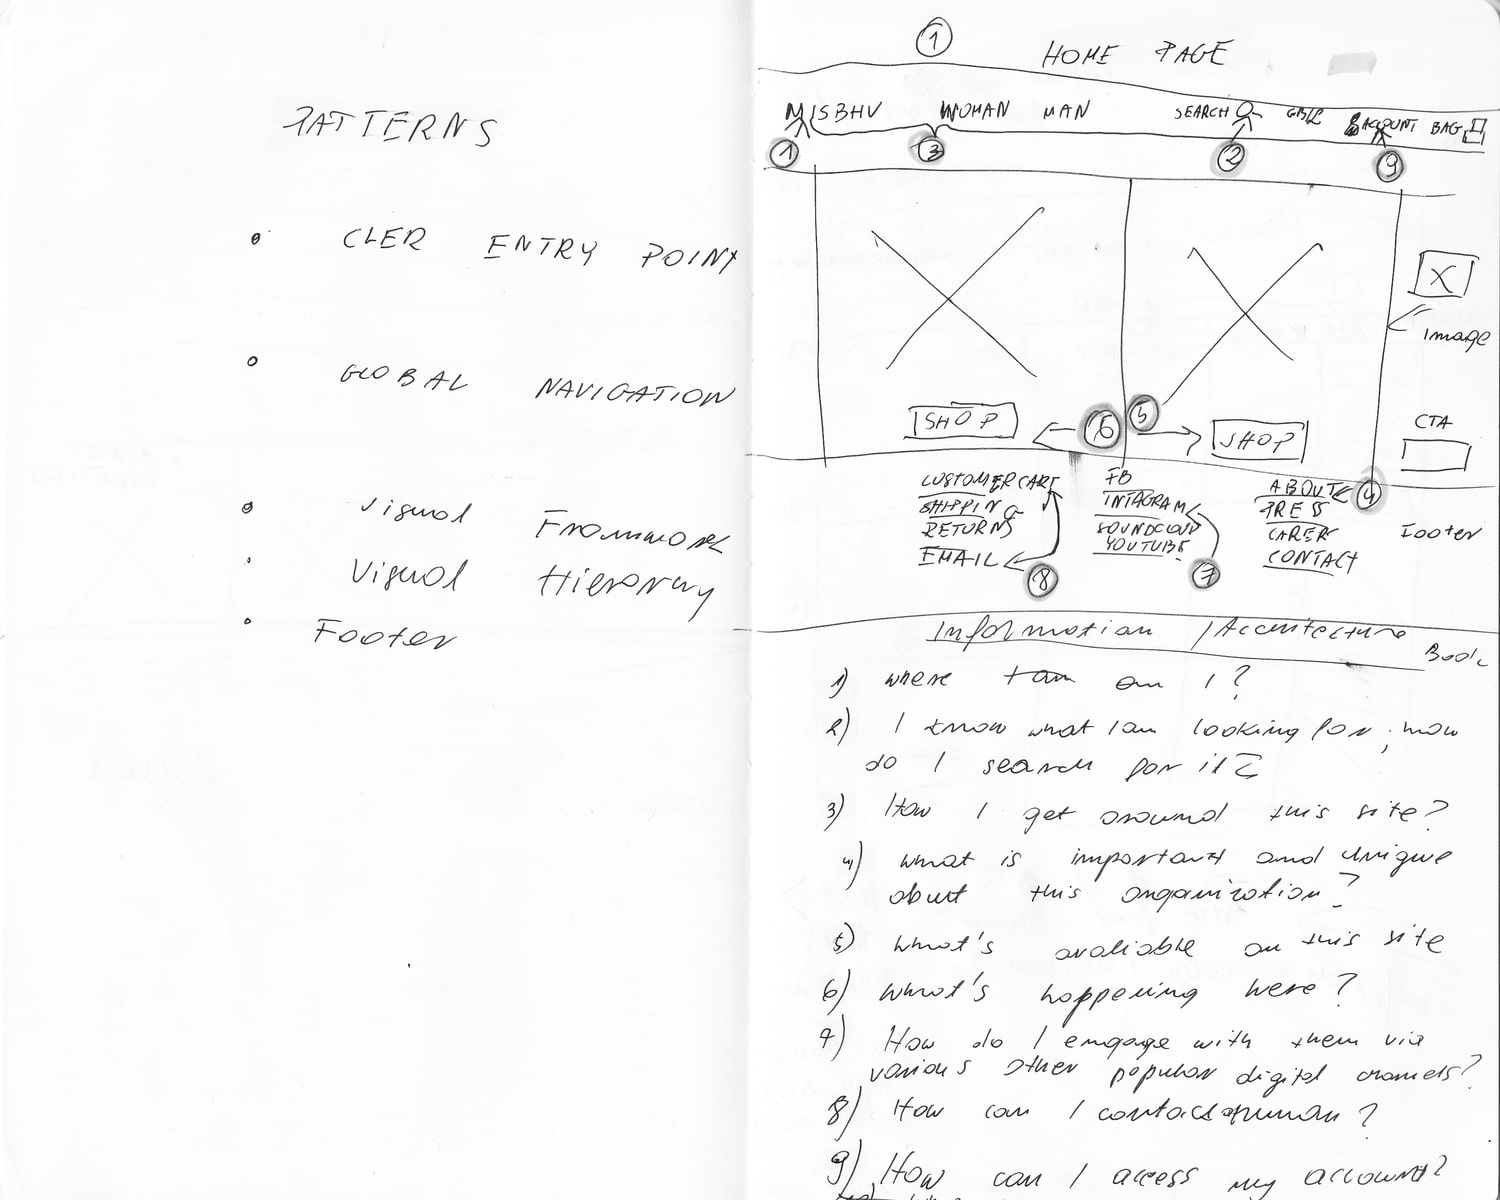 PATTERNS
CLER ENTRY POINT
GLOBAL NAVIGATION
Visual Framework
Visual Hierarhy
Footer
1
HOME PAGE
MISBHV WOMAN MAN SEARCH ACCOUNT BAG
1 3 2 9
X
image
SHOP 6 5 SHOP
CTA
CUSTOMER CARE
SHIPPING
RETURNS
EMAIL
8
FB
INTAGRAM
SOUNDCLOUD
YOUTUBE
7
ABOUT 4
PRESS
CARER
CONTACT
Footer
Information Architecture
Book
1) where am I?
2) I know what I am looking for, how
do I search for it?
3) How I get around this site?
4) what is important and unique
about this organization?
5) what's avaliable on this site
6) what's happening here?
7) How do I engage with them via
various other popular digital channels?
8) How can I contact a human?
9) How can I access my account?